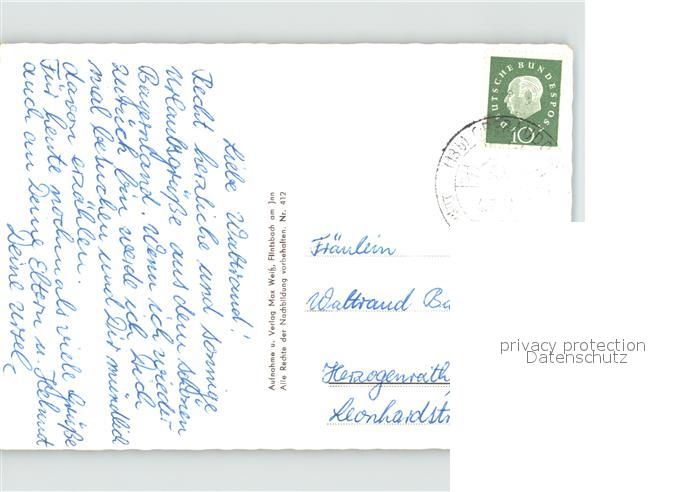 Liebe Waltraud!
Recht herzliche und sonnige
Urlaubsgrüße aus dem schönen
Bayernland. Wenn ich wieder
zurück bin werde ich Dich
mal besuchen und Dir mündlich
davon erzählen.
Für heute nochmals viele Grüße
auch an Deine Eltern u. Helmut
Deine Ursel
Aufnahme u. Verlag Max Weiß, Flintsbach am Jnn
Alle Rechte der Nachbildung vorbehalten. Nr. 412
DEUTSCHE BUNDESPOS
10
Fräulein
Waltraud Ba
Herzogenrath
Leonhardstr
privacy protection
Datenschutz